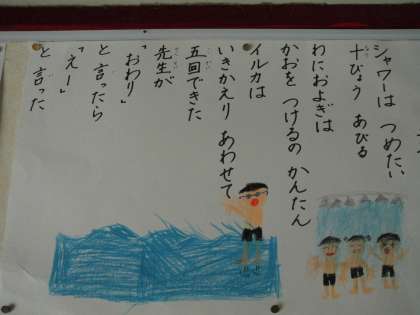 シャワーは つめたい
十びょう あびる
わにおよぎは
かおを つけるの かんたん
イルカは
いきかえり あわせて
五回できた
先生が
「おわり」
と言ったら
「えー」
と言った